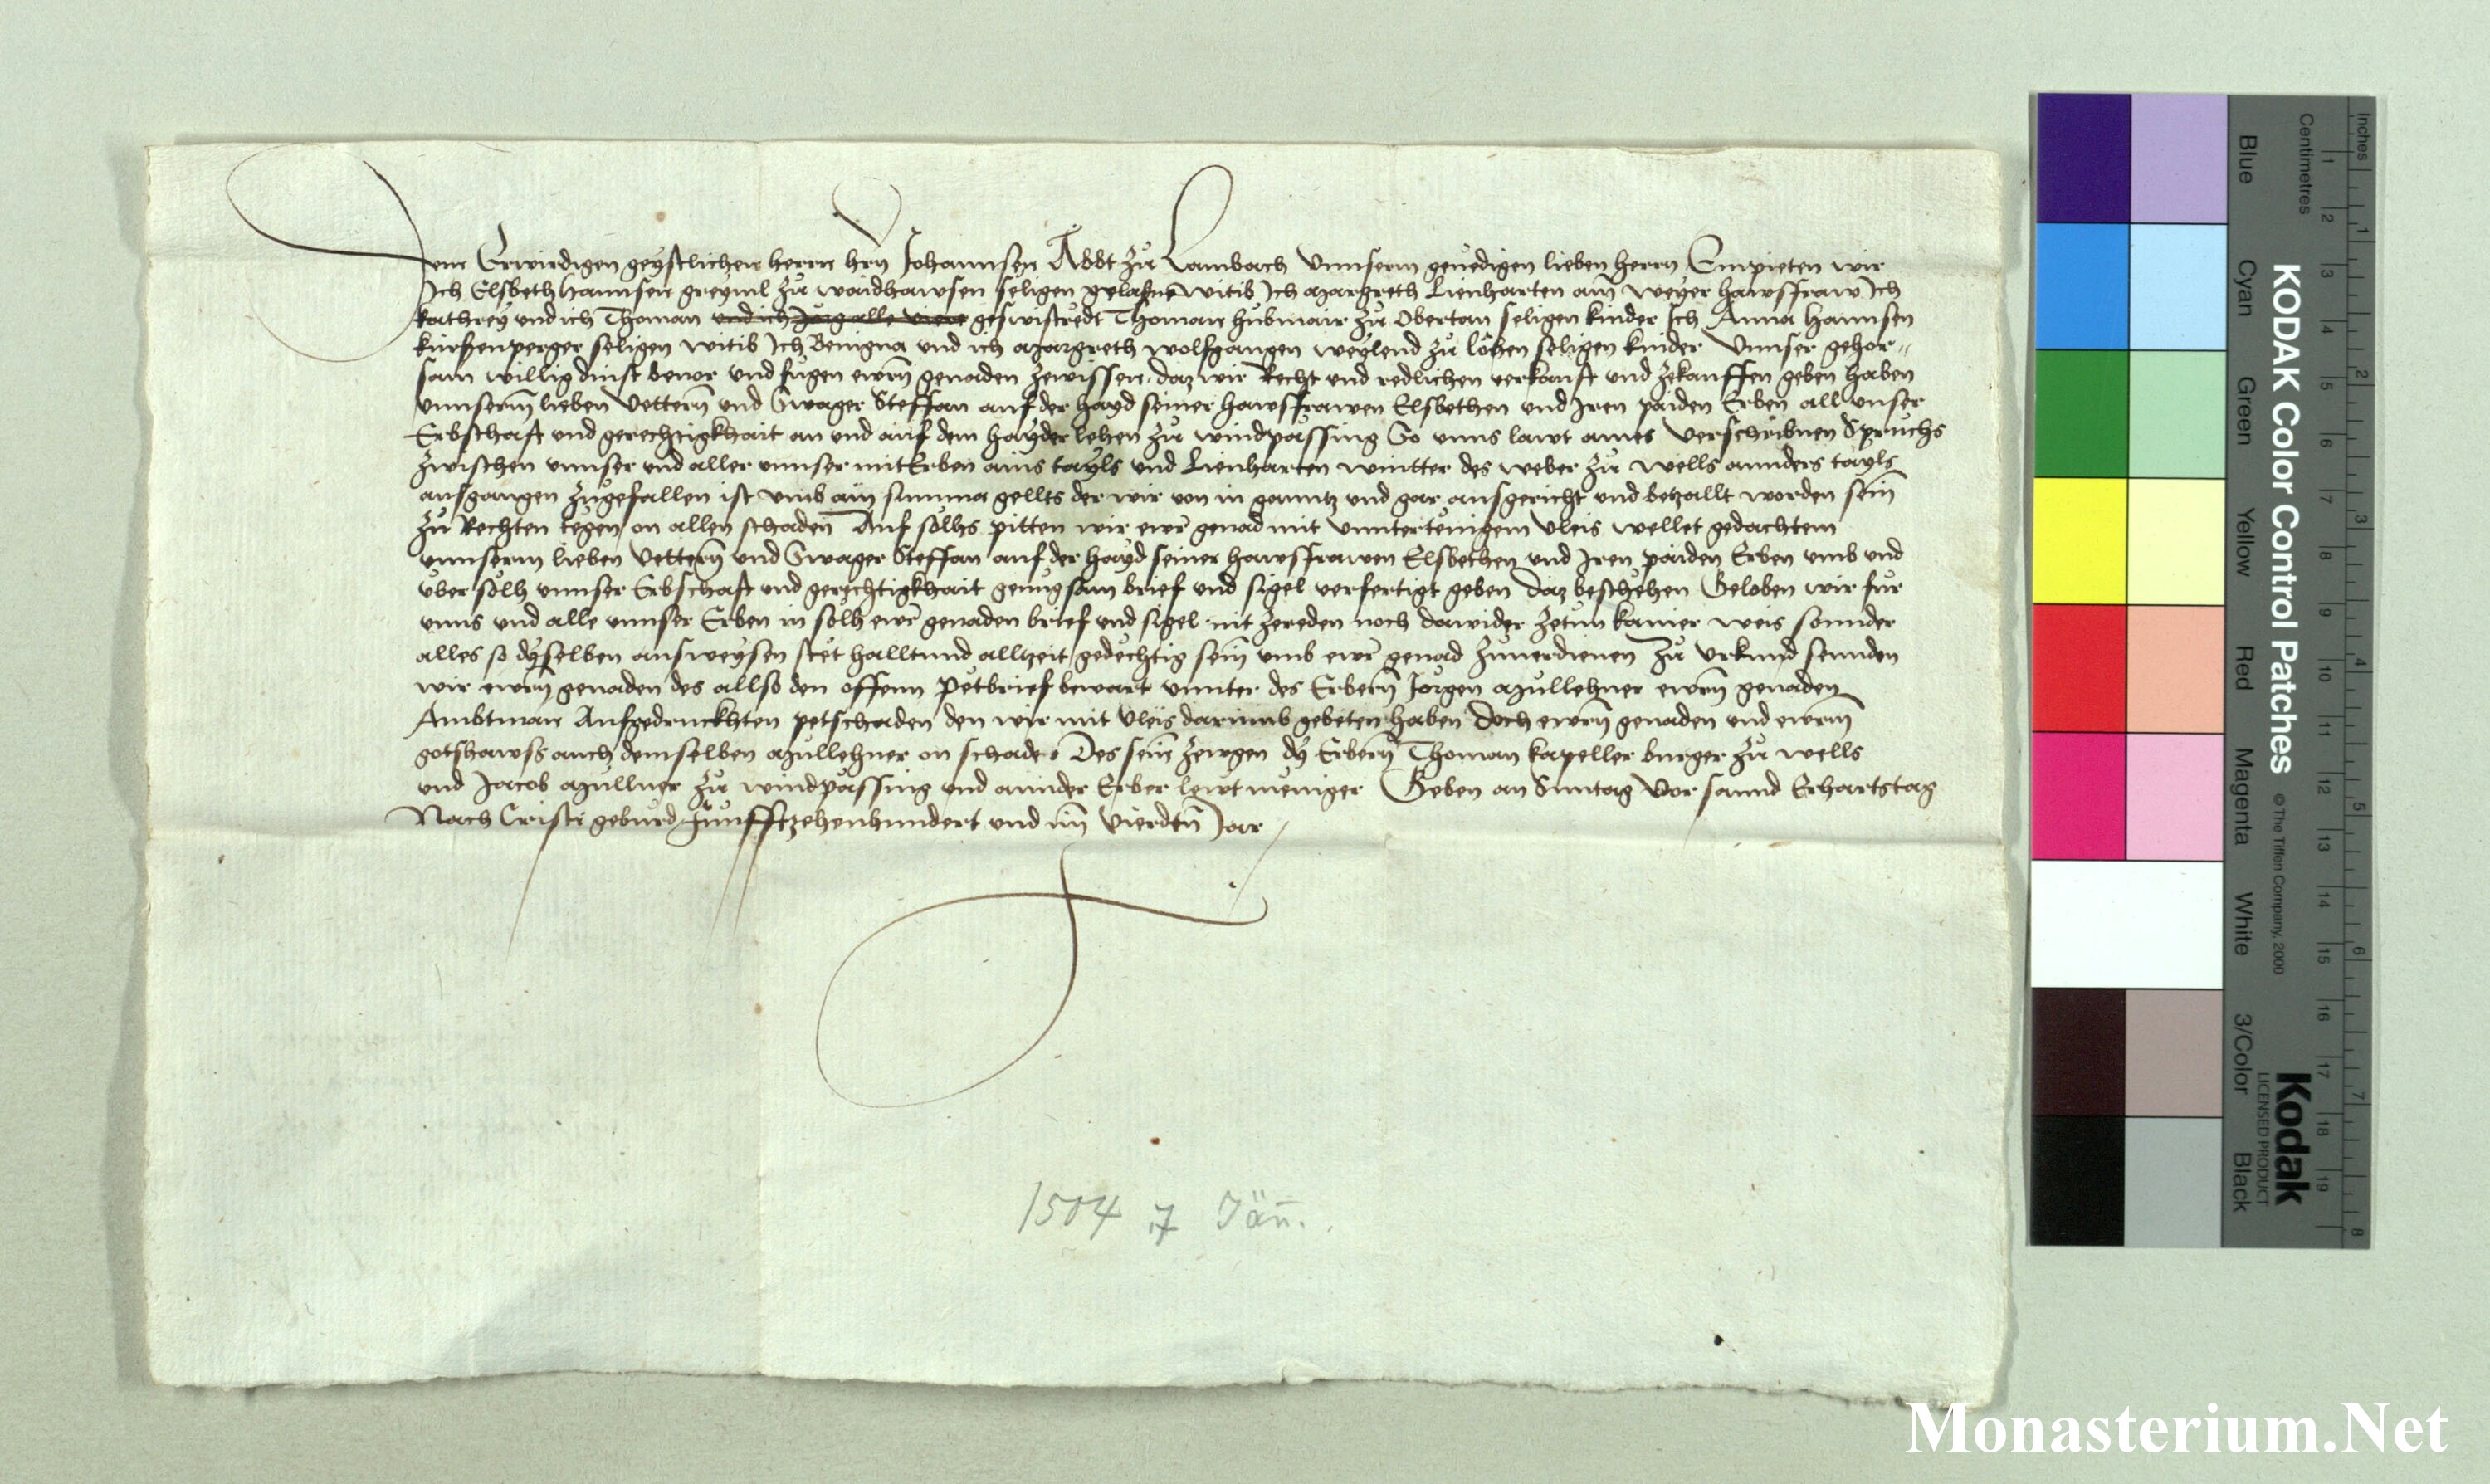 Dem Erwirdigen geystlichen herrn hrn Johannsen Abbt zu Lambach Unnserm genedigen lieben herrn Empieten wir
Ich Elsbeth hannsen greyml zu waidhawsen seligen gelassne witib Ich Margreth Lienharten am weyer hawsfraw Ich
kathrey und ich Thoman und ich Jorg alle viere geswistredt Thoman hubmair zu Obertan seligen kinder Ich Anna hannsen
kursenperger seligen witib Ich Benigna und ich Margreth wolfgangen weylend zu lohen seligen kinder Unnser gehor„
sam willig dinst bevor und fugen ewrn genaden zewissen daz wir Recht und redlichen verkauft und zekauffen geben haben
unnserm lieben Vettern und Swager Steffan auf der hayd seiner hawsfrawen Elsbethen und Iren paiden Erben all unser
Erbschaft und gerechtigkhait an und auf dem hayder lehen zu windpassing So unns lawt aines verschribnen Spruchs
zwischen unnser und aller unnser mitErben ains tayls und Lienharten wintter des weber zu wells annders tayls
ausgangen zugefallen ist umb ain summa gellts der wir von in ganntz und gar ausgericht und betzallt worden sein
zu Rechten tegen on allen schaden Auf solhs pitten wir ewr genad mit unntertenigem vleis wellet gedachtem
unnserm lieben Vettern und Swager Steffan auf der hayd seiner hawsfrawen Elsbethen und Iren paiden Erben umb und
uber solh unnser Erbschaft und gerechtigkhait genugsam brief und sigel verfertigt geben daz beschehen Geloben wir fur
unns und alle unnser Erben in solh ewr genaden brief und sigel nit zereden noch dawider zetun kainer weis sonnder
alles so dyselben ausweysen stet halltund alltzeit gedechtig sein umb ewr genad zuverdienen Zu Urkund sennden
wir ewrn genaden des allso den offenn petbrief bewart unnter des Erbern Jorgen Mullehner ewrn genaden
Ambtman Aufgedruckhten petschaden den wir mit vleis darumb gebeten haben doch ewrn genaden und ewrm
gotshawss auch demselben Mullehner on schade Des sein zewgen dy Erbern Thoman kapeller burger zu wells
und Jacob Mullner zu windpassing und annder Erber lewt meniger Geben an Suntag Vor sannd Erhartstag
Nach Cristi geburd Funfftzehenhundert und im Vierdtn Jar
1504 7 Jän.
KODAK Color Control Patches
© The Tiffen Company, 2000
Kodak
LICENSED PRODUCT
Inches
Centimetres
Blue
Cyan
Green
Yellow
Red
Magenta
White
3/Color
Black
1 2 3 4 5 6 7 8 9 10 11 12 13 14 15 16 17 18 19
1 2 3 4 5 6 7 8
Monasterium.Net